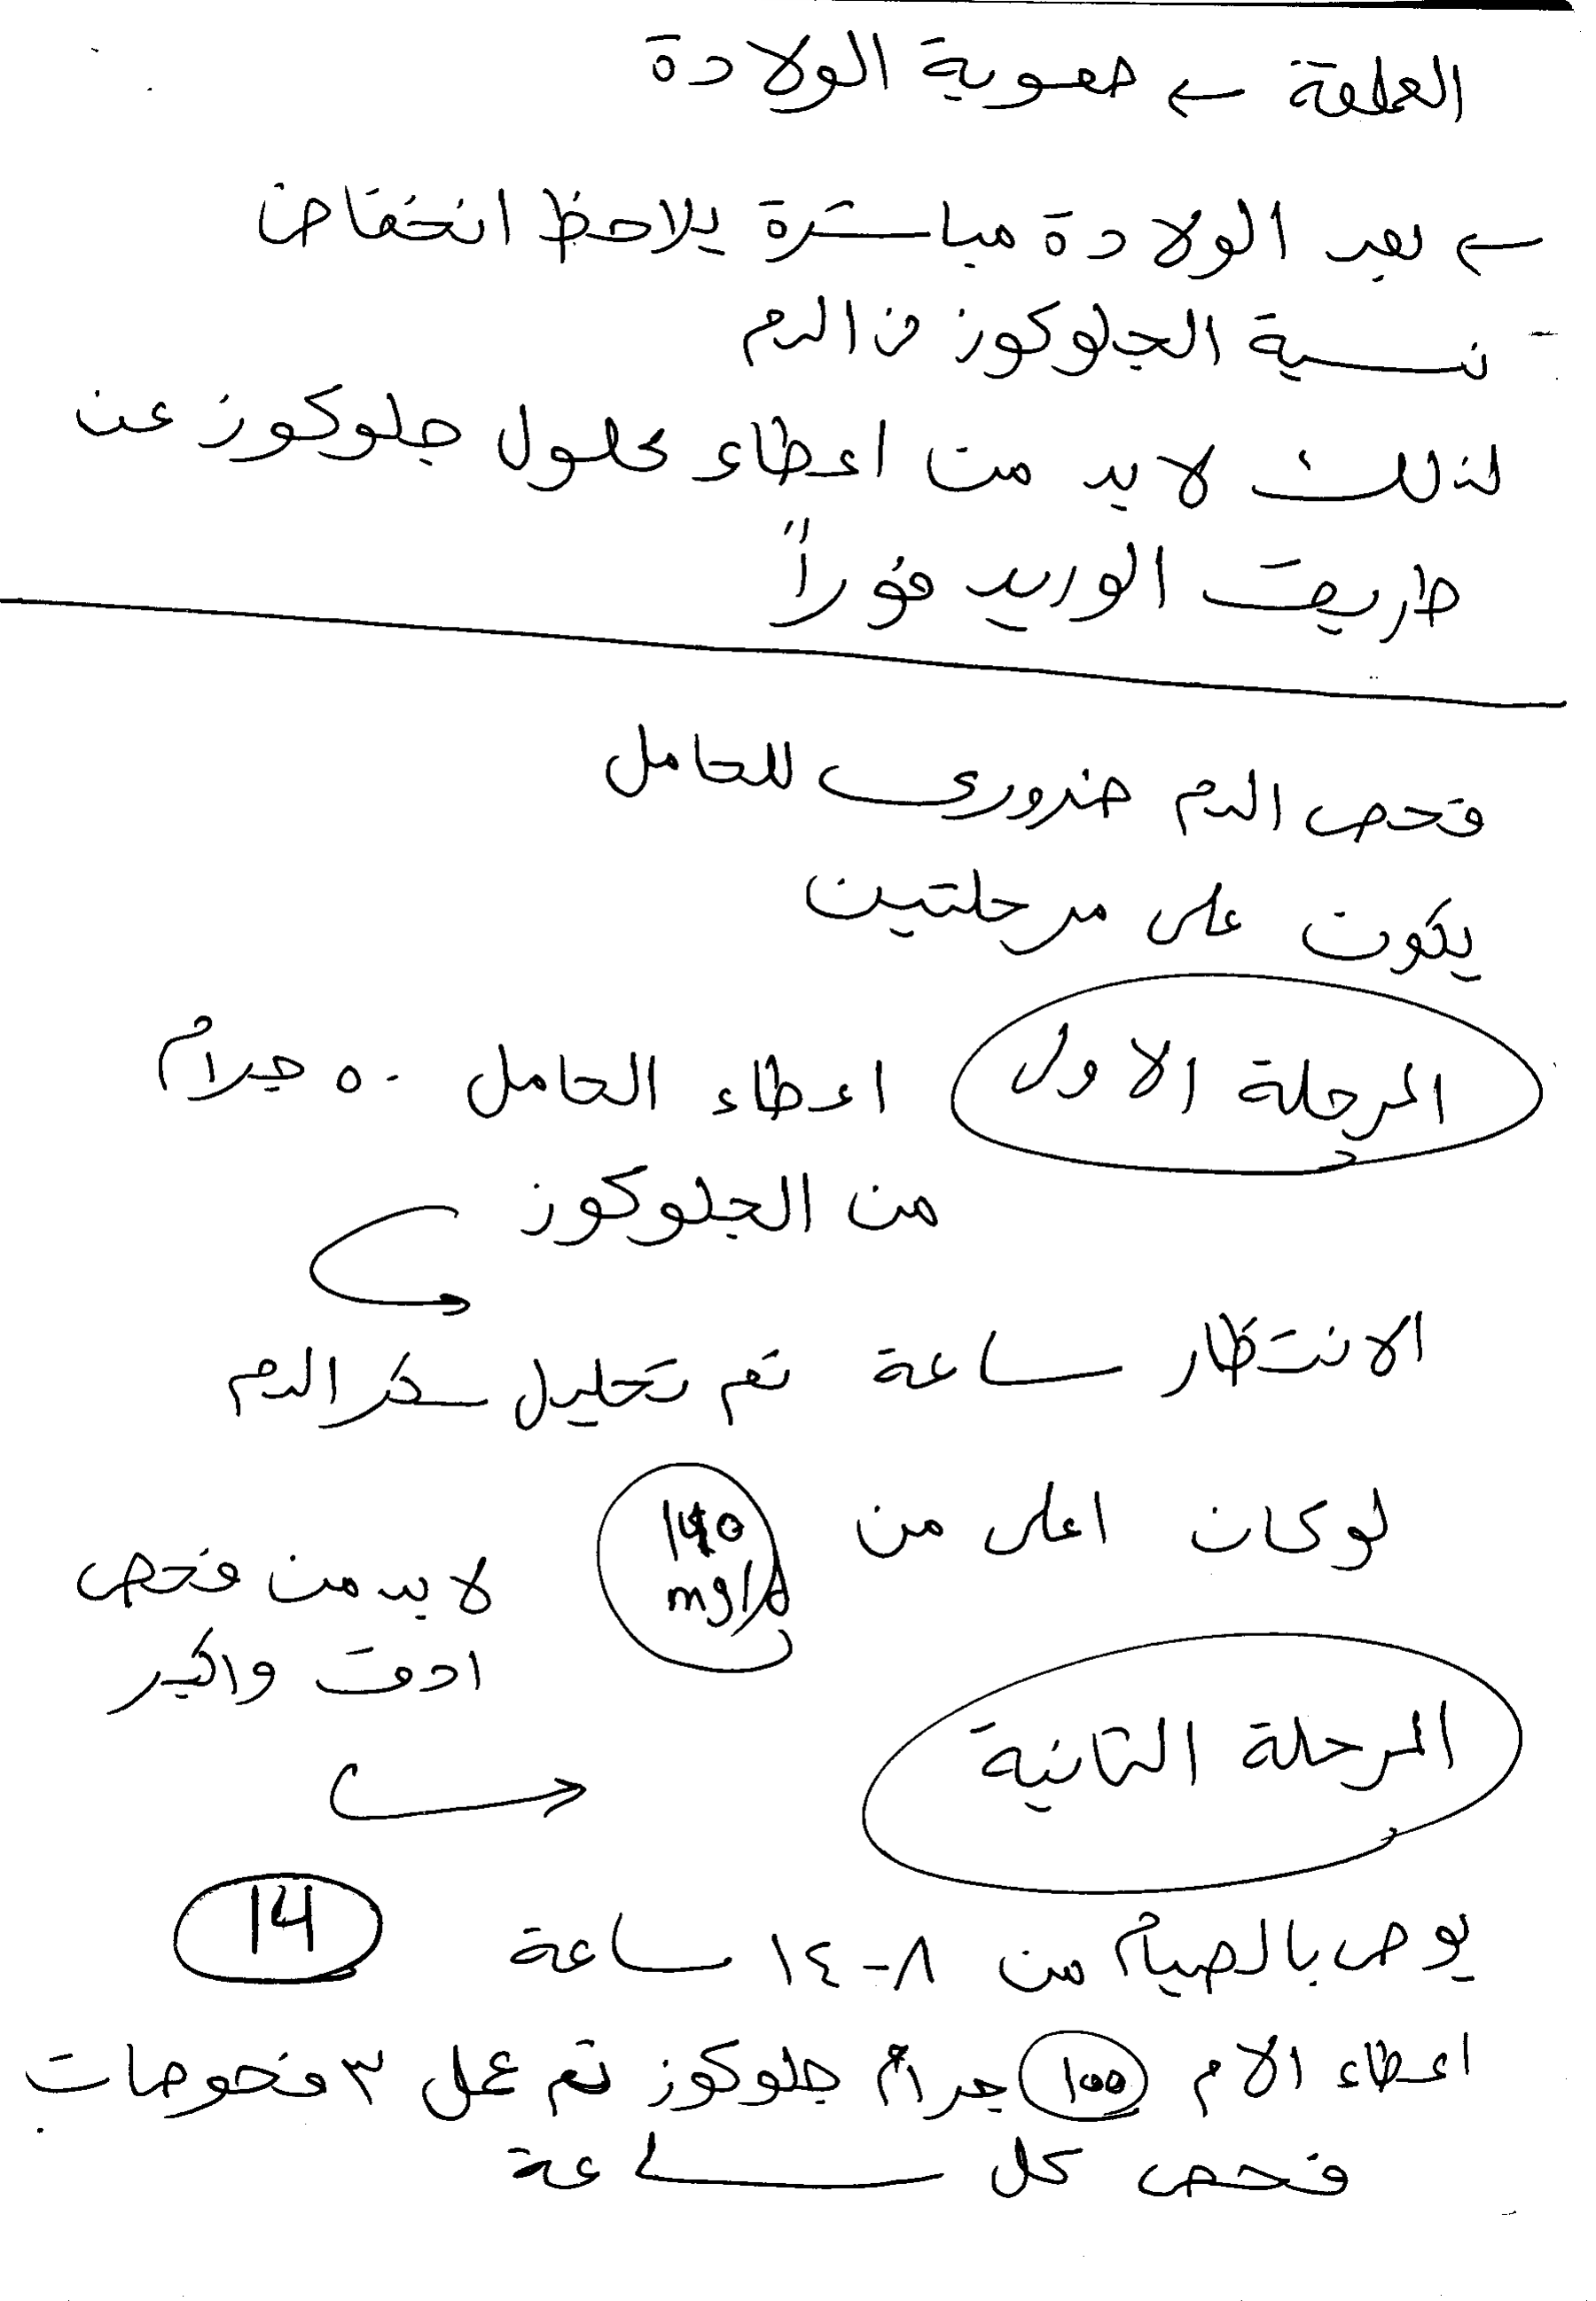 العلقة ← صعوبة الولادة
← بعد الولادة مباشرة يلاحظ انخفاض
نسبة الجلوكوز في الدم
لذلك لابد من اعطاء محلول جلوكوز عن
طريق الوريد فوراً
فحص الدم ضروري للحامل
يكون على مرحلتين
المرحلة الاولى اعطاء الحامل ٥٠ جرام
من الجلوكوز
الانتظار ساعة ثم تحليل سكر الدم
لو كان اعلى من 140 mg/d
لابد من فحص
ادق واكبر
المرحلة الثانية
يوصى بالصيام من ٨-١٤ ساعة 14
اعطاء الام 100 جرام جلوكوز ثم عمل ٣ فحوصات
فحص كل ساعة